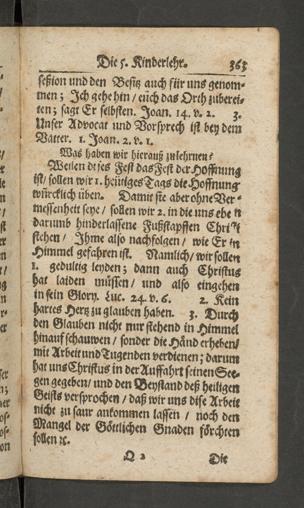 Die 5. Kinderlehr. 363
seßion und den Besitz auch für uns genom-
men; Ich gehe hin / euch das Orth zuberei-
ten; sagt Er selbsten. Joan. 14. v. 2. 3.
Unser Advocat und Vorsprech ist bey dem
Vatter. 1. Joan. 2. v. 1.
Was haben wir hierauß zu lehrnen?
Weilen dises Fest das Fest der Hoffnung
ist / sollen wir 1. heütiges Tags die Hoffnung
würcklich üben. Damit sie aber ohne Ver-
messenheit seye / sollen wir 2. in die uns eben
darumb hinderlassene Fußstapffen Christi
stehen / Ihme also nachfolgen / wie Er in
Himmel gefahren ist. Namlich / wir sollen
1. gedultig leyden; dann auch Christus
hat laiden müssen / und also eingehen
in sein Glory. Luc. 24. v. 6. 2. Kein
hartes Hertz zu glauben haben. 3. Durch
den Glauben nicht nur stehend in Himmel
hinauf schauwen / sonder die Händ erheben /
mit Arbeit und Tugenden verdienen; darum
hat uns Christus in der Auffahrt seinen See-
gen gegeben / und den Beystand deß heiligen
Geists versprochen / daß wir uns dise Arbeit
nicht zu saur ankommen lassen / noch den
Mangel der Göttlichen Gnaden förchten
sollen ꝛc.
Q 2 Die